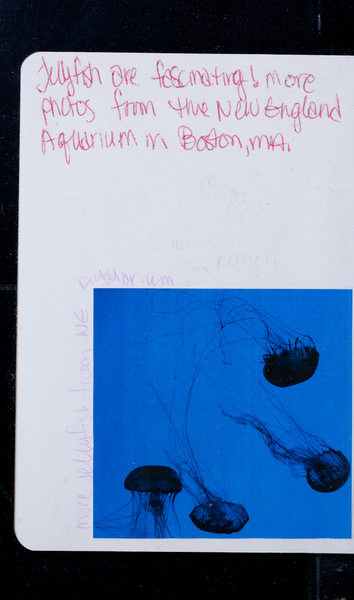 Jellyfish are fascinating! more
photos from the New England
Aquarium in Boston, MA.
more jellyfish from NE
Aquarium